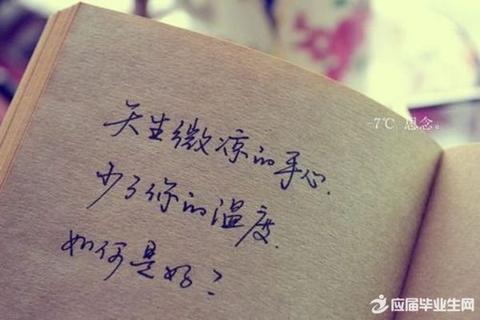 天生微凉的手心.
少了你的温度.
如何是好?
-7℃ 思念。
应届毕业生网